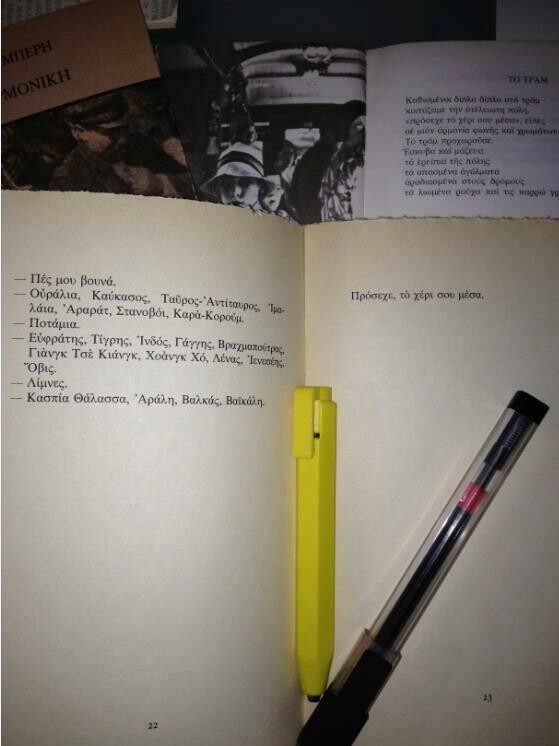 ΜΠΕΡΗ
ΜΟΝΙΚΗ
ΤΟ ΤΡΑΜ
Καθισμένοι δίπλα δίπλα στό τράμ
κοιτάζαμε τήν ἀτέλειωτη πόλη,
«πρόσεχε τό χέρι σου μέσα», εἶπες
σέ μιάν ἁρμονία φωνῆς καί χρωμάτων
Τό τράμ προχωροῦσε.
Ἔσκυβα καί μάζευα
τά ἐρείπια τῆς πόλης
τά σπασμένα ἀγάλματα
ἀραδιασμένα στούς δρόμους
τά λιωμένα ροῦχα καί τίς καρρώ γρ
— Πές μου βουνά.
— Οὐράλια, Καύκασος, Ταῦρος-Ἀντίταυρος, Ἱμα-
λάια, Ἀραράτ, Στανοβόι, Καρὰ-Κορούμ.
— Ποτάμια.
— Εὐφράτης, Τίγρης, Ἰνδός, Γάγγης, Βραχμαπούτρας,
Γιὰνγκ Τσὲ Κιάνγκ, Χοὰνγκ Χό, Λένας, Ἰενεσέης,
Ὄβις.
— Λίμνες.
— Κασπία Θάλασσα, Ἀράλη, Βαλκάς, Βαϊκάλη.
22
Πρόσεχε, τὸ χέρι σου μέσα.
23